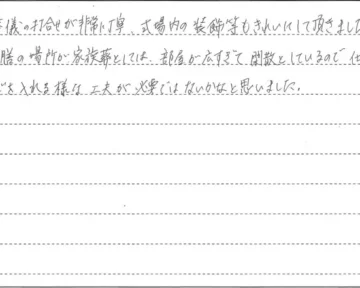 儀の打合せが非常に丁寧、式場内の装飾等もきれいにして頂きました
膳の場所が家族葬としては、部屋が広すぎて閑散としているので、仕
を入れる様な工夫が必要ではないかなと思いました。